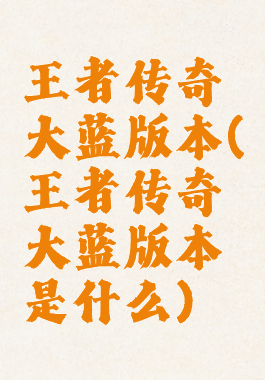 王者传奇
大蓝版本(
王者传奇
大蓝版本
是什么)